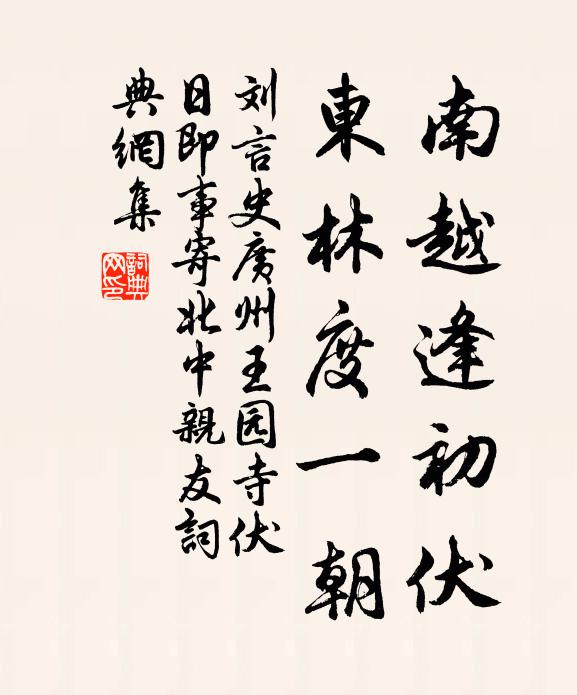 南越逢初伏
東林度一朝
刘言史廣州王园寺伏
日即事寄北中親友詞
典網集
詞典网印